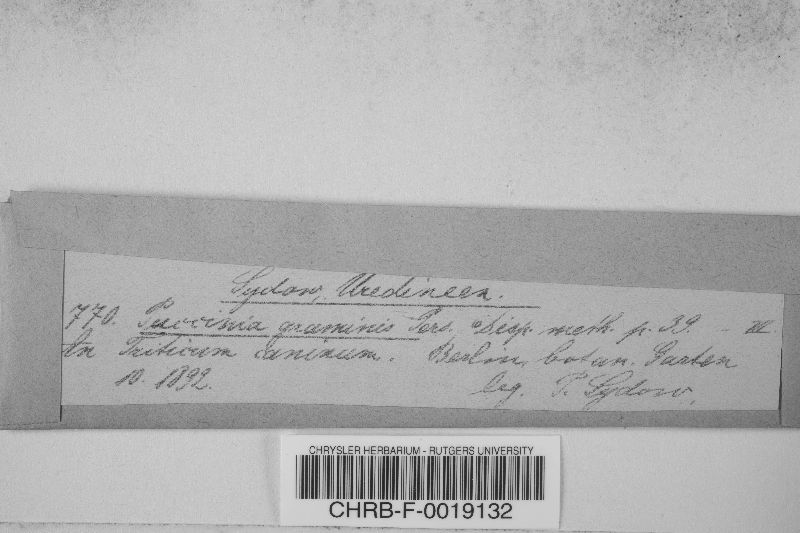 Sydow, Uredineen.
770. Puccinia graminis Pers. Disp. meth. p. 39. - III.
An Triticum caninum. Berlin, botan. Garten
10. 1892. leg. P. Sydow.
CHRYSLER HERBARIUM - RUTGERS UNIVERSITY
CHRB-F-0019132